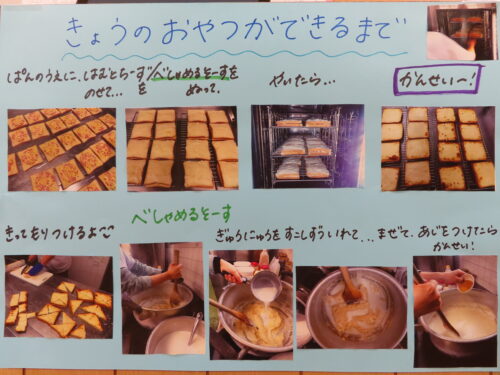 きょうのおやつができるまで
ぱんのうえに、はむとちーずを
のせて…
べしゃめるそーすを
ぬって、
やいたら…
かんせいー!
きってもりつけるよ〜
べしゃめるそーす
ぎゅうにゅうをすこしずついれて…
まぜて、あじをつけたら
かんせい!